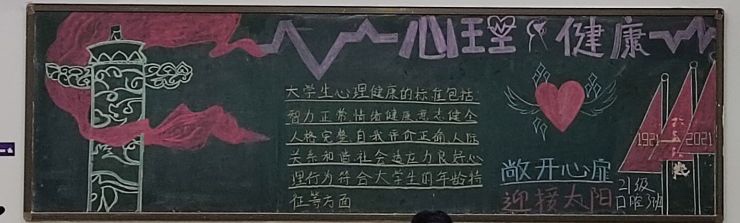 心理健康
大学生心理健康的标准包括:
智力正常情绪健康意志健全
人格完整自我评价正确人际
关系和谐社会适应力良好心
理行为符合大学生的年龄特
征等方面
敞开心扉
迎接太阳
1921—2021
21级
口腔3班